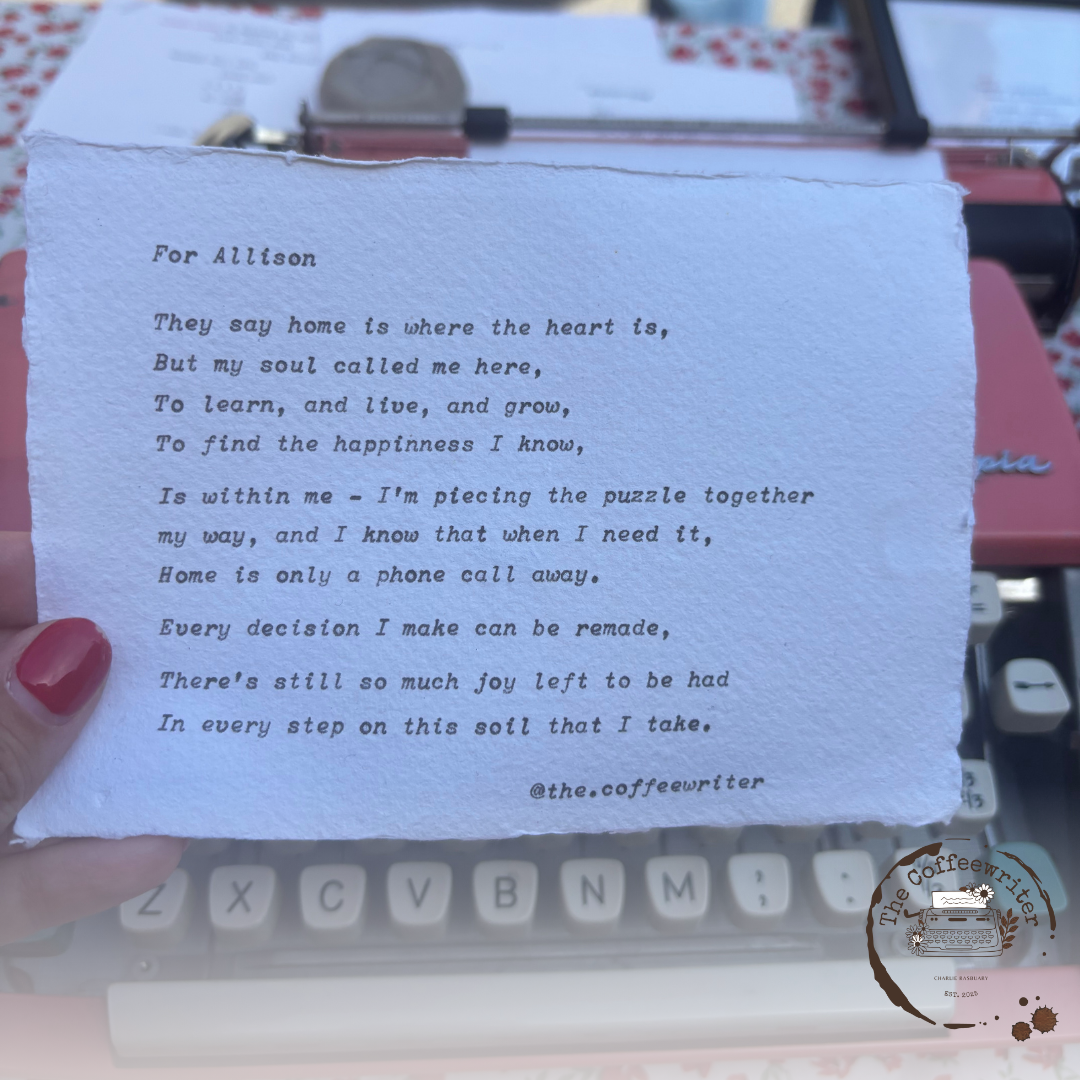 For Allison
They say home is where the heart is,
But my soul called me here,
To learn, and live, and grow,
To find the happinness I know,
Is within me - I'm piecing the puzzle together
my way, and I know that when I need it,
Home is only a phone call away.
Every decision I make can be remade,
There's still so much joy left to be had
In every step on this soil that I take.
@the.coffeewriter
pia
Z X C V B N M
The Coffeewriter
CHARLIE BASQUARY
EST. 2025